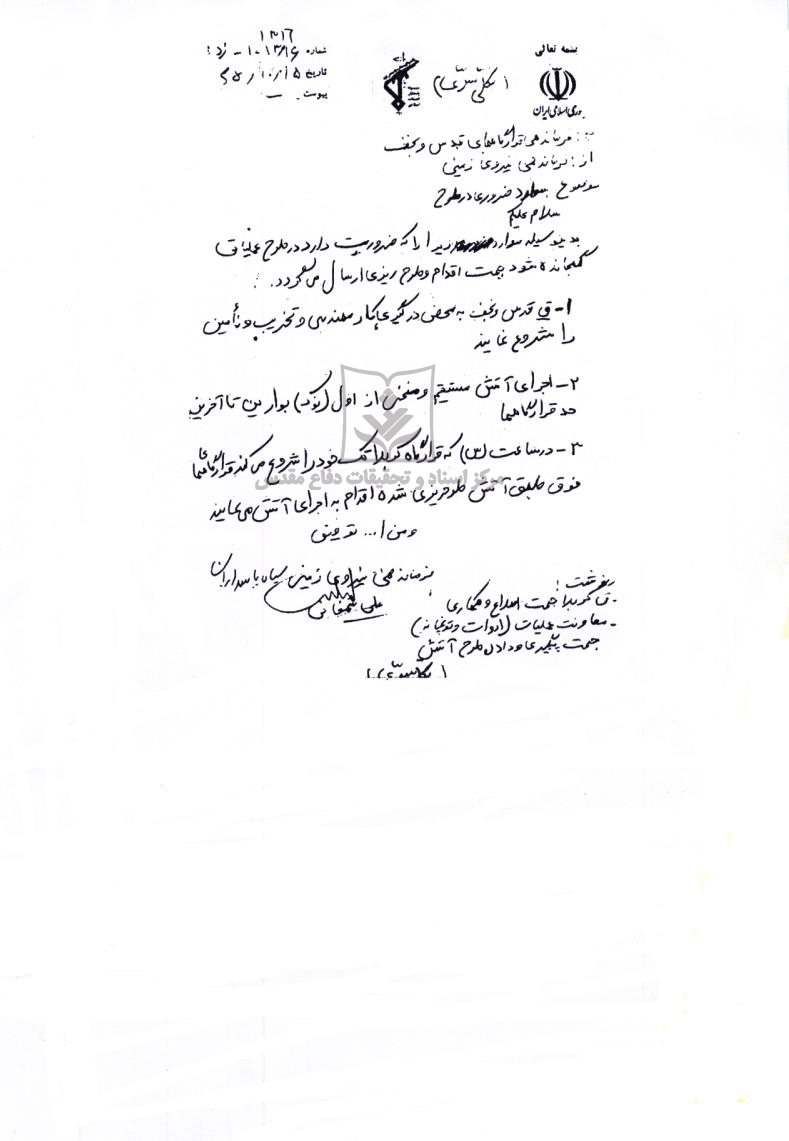 بسمه تعالی
جمهوری اسلامی ایران
(بکلّی سرّی)
۱۳۱۶
شماره ۱۰۱۳/۱۶ - زد:
تاریخ ۶۵/۱۰/۱۵
پیوست: ـــ
به: فرماندهی قرارگاههای قدس و نجف
از: فرماندهی نیروی زمینی
موضوع: موارد ضروری در طرح
سلام علیکم
بدینوسیله موارد زیر را که ضرورت دارد در طرح عملیات
گنجانده شود جهت اقدام و طرح ریزی ارسال میگردد.:
۱- ق قدس و نجف به محض درگیری کار مهندسی و تخریب و تأمین
را شروع نمایند
۲- اجرای آتش مستقیم و منحنی از اول (نوک) بوارین تا آخرین
حد قرارگاهها
۳- در ساعت (س) که قرارگاه کربلا تک خود را شروع می کند قرارگاههای
فوق طبق آتش طرحریزی شده اقدام به اجرای آتش می نمایند
و من ا... توفیق
فرماندهی نیروی زمینی سپاه پاسداران
علی شمخانی
رونوشت:
- ق کربلا جهت اطلاع و همکاری
- معاونت عملیات (ادوات و توپخانه)
جهت پیگیری و دادن طرح آتش
(بکلّی سرّی)
مرکز اسناد و تحقیقات دفاع مقدس